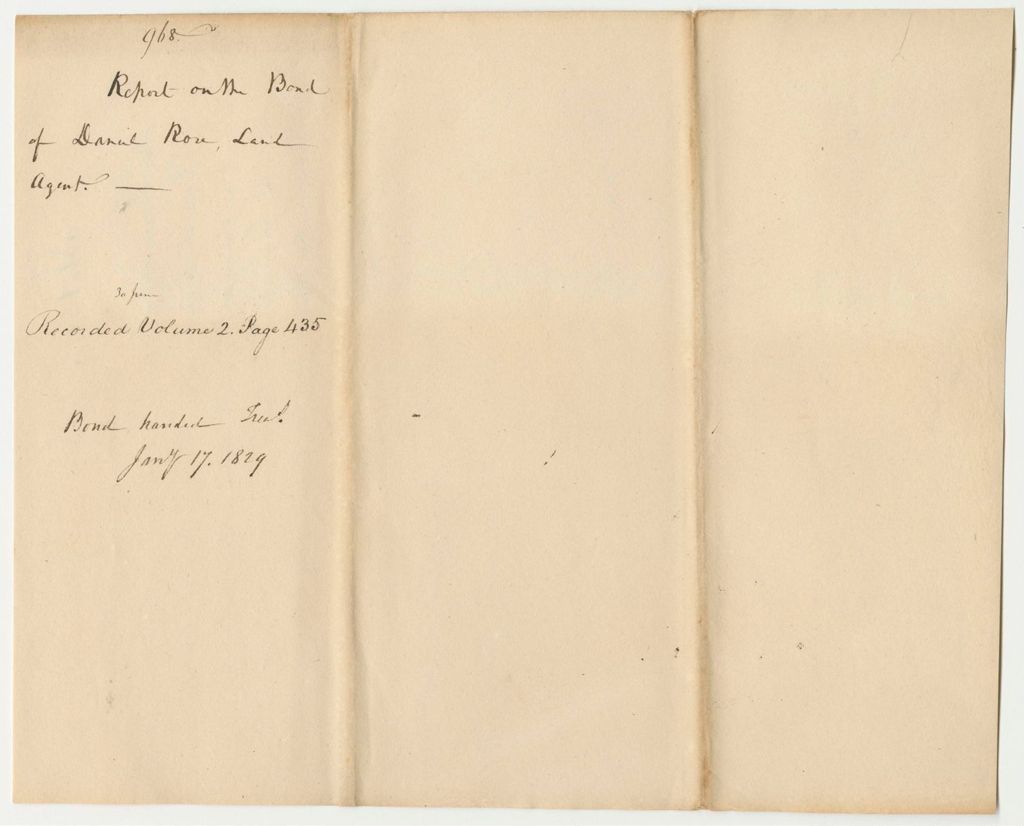 968
Report on the Bond
of Daniel Rose, Land
Agent. —
Recorded Volume 2. Page 435
Bond handed Treas.
Jany 17. 1829